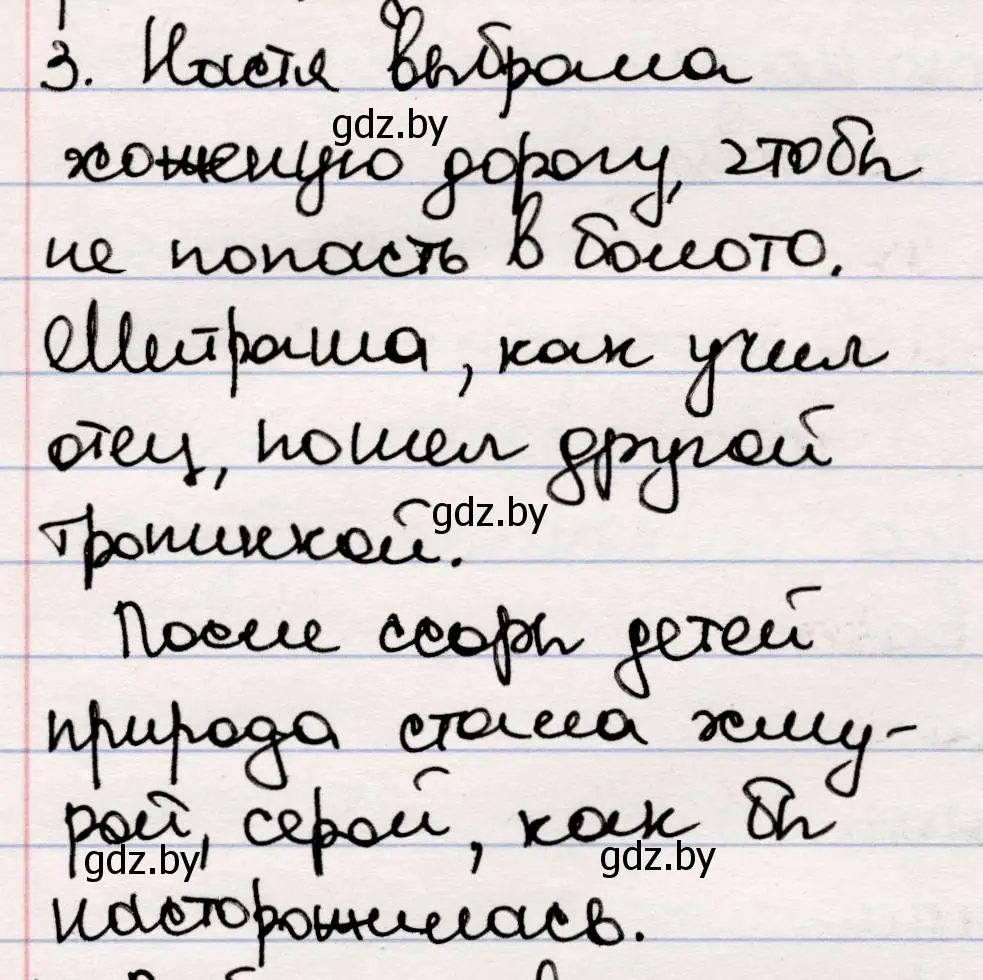 3. Настя выбрала
gdz.by
хоженую дорогу, чтобы
не попасть в болото.
Митраша, как учил
отец, пошел другой
gdz.by
тропинкой.
После ссоры детей
природа стала хму-
рой, серой, как бы
gdz.by gdz.by
насторожилась.